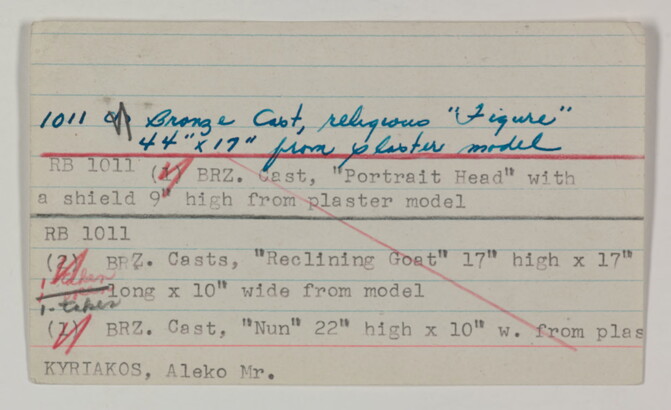 1011 Bronze Cast, religious "Figure"
44" x 17" from plaster model
RB 1011 (1) BRZ. Cast, "Portrait Head" with
a shield 9" high from plaster model
RB 1011
(2) BRZ. Casts, "Reclining Goat" 17" high x 17"
1 taken
long x 10" wide from model
1-taken
(1) BRZ. Cast, "Nun" 22" high x 10" w. from plas
KYRIAKOS, Aleko Mr.